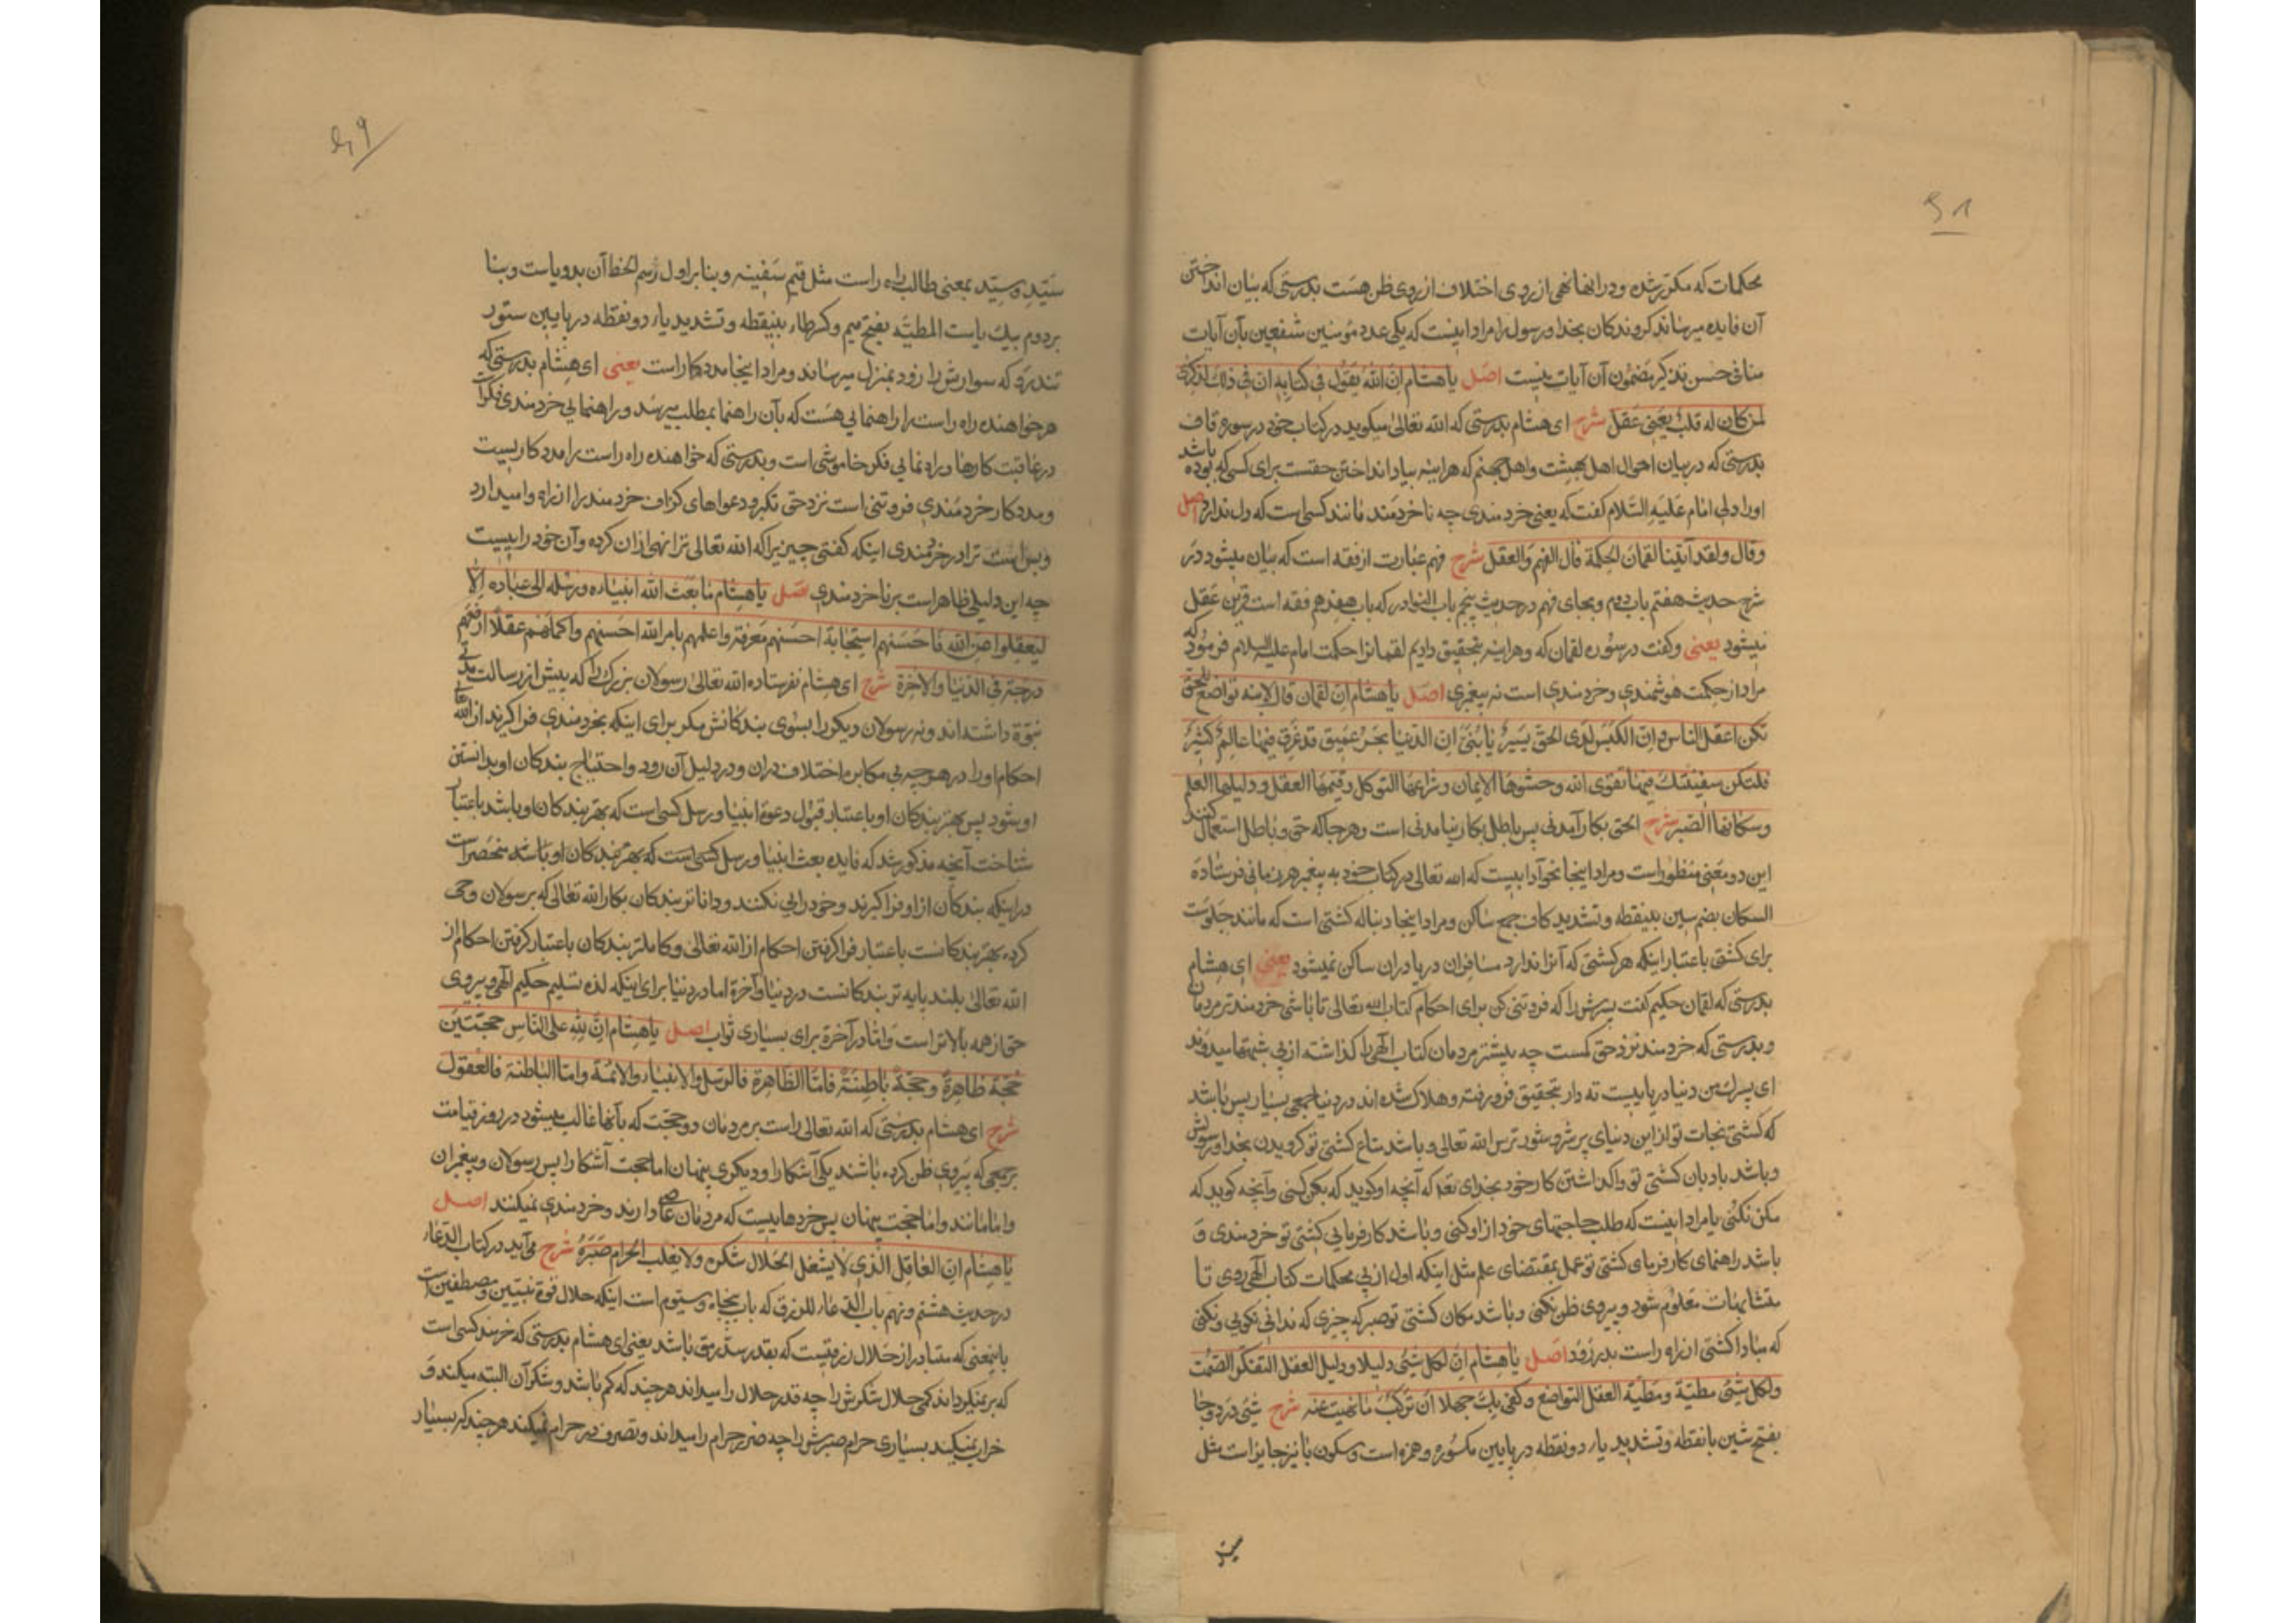 ۵۸
محکمات که مکرر شده و در انها نهی از روی اختلاف از روی ظن هست بدرستی که بیان انداختن
آن فایده میرساند کروندکان بخدا و رسول را مراد اینست که یکی عدد مؤمنین شفعین بآن آیات
منافی حسن تذکیر مضمون آن آیات نیست اصل یا هشام ان الله یقول فی کتابه ان فی ذلك لذکری
لمن کان له قلب یعنی عقل شرح ای هشام بدرستی که الله تعالی میکوید در کتاب خود در سوره قاف
بدرستی که در بیان احوال اهل بهشت و اهل جهنم که هراینه بیاد انداختن حقست برای کسی که بوده باشد
اورا دلی امام علیه السلام کفت که یعنی خردمندی چه ناخردمند مانند کسی است که دل ندارد اصل
وقال ولقد آتینا لقمان الحکمة قال الفهم والعقل شرح فهم عبارت از فقه است که بیان میشود در
شرح حدیث هفتم باب دوم و بجای فهم در حدیث پنجم باب النوادر که باب هفدهم فقه است قرین عقل
میشود یعنی وکفت در سوره لقمان که و هراینه بتحقیق دادیم لقمانرا حکمت امام علیه السلام فرمود که
مراد از حکمت هوشمندی و خردمندی است نه پیغمبری اصل یا هشام ان لقمان قال لابنه تواضع للحق
تکن اعقل الناس وان الکیس لدی الحق یسیر یا بنی ان الدنیا بحر عمیق قد غرق فیها عالم کثیر
فلتکن سفینتك فیها تقوی الله وحشوها الایمان وشراعها التوکل وقیمها العقل ودلیلها العلم
وسکانها الصبر شرح الحق بکار آمدنی پس باطل بکار نیامدنی است وهرجا که حق وباطل استعمال کنند
این دو معنی منظور است ومراد اینجا نحو آدابیست که الله تعالی در کتاب خود به پیغمبر هر زمانی فرستاده
السکان بضم سین بینقطه و تشدید کاف جمع ساکن ومراد اینجا دنباله کشتی است که مانند جلوست
برای کشتی باعتبار اینکه هر کشتی که آنرا ندارد مسافران دریا دران ساکن نمیشود یعنی ای هشام
بدرستی که لقمان حکیم کفت پسرش را که فروتنی کن برای احکام کتاب الله تعالی تا باشی خردمندتر مردمان
وبدرستی که خردمند نزد حق کمست چه بیشتر مردمان کتاب الهی را کذاشته از پی شبهتها میروند
ای پسرك من دنیا دریاییست ته دار بتحقیق فرو رفته وهلاك شده اند در دنیا جمعی بسیار پس باشد
که کشتی نجات تو از این دنیای پر شر و شور ترس الله تعالی و باشد متاع کشتی تو کرویدن بخدا و رسولش
وباشد بادبان کشتی تو واکذاشتن کار خود بخدای تعا که آنچه او کوید که بکن کنی وآنچه کوید که
مکن نکنی یا مراد اینست که طلب حاجتهای خود از او کنی وباشد کارفرمایی کشتی تو خردمندی و
باشد راهنمای کارفرمای کشتی تو عمل بمقتضای علم مثل اینکه اول از پی محکمات کتاب الهی روی تا
متشابهات معلوم شود وپیروی ظن نکنی وباشد مکان کشتی تو صبر که چیزی که ندانی نکویی ونکنی
که مبادا کشتی از راه راست بدر رود اصل یا هشام ان لکل شیئ دلیلا ودلیل العقل التفکر ودلیل التفکر الصمت
ولکل شیئ مطیة ومطیة العقل التواضع وکفی بك جهلا ان ترکب ما نهیت عنه شرح شیئ در دو جا
بفتح شین بانقطه وتشدید یاء دو نقطه در پایین مکسوره وهمزه است وسکون یا نیز جایز است مثل
سید
۵۹
سید وسیّد بمعنی طالب راه راست مثل قیم سفینه وبنابر اول رسم الخط آن بدو یاست وبنا
بر دوم بیك یاست المطیة بفتح میم وکسر طاء بینقطه وتشدید یاء دو نقطه در پایین ستور
تندرو که سوارش را زود بمنزل میرساند ومراد اینجا مددکار است یعنی ای هشام بدرستی که
هر خواهنده راه راست را راهنمایی هست که بآن راهنما بمطلب میرسد وراهنمایی خردمندی فکر است
در عاقبت کارها و راهنمایی فکر خاموشی است وبدرستی که خواهنده راه راست را مددکاریست
ومددکار خردمندی فروتنی است نزد حق تکبر ودعواهای کزاف خردمند را از راه وامیدارد
وبس است ترا در خردمندی اینکه کفتی چیزیرا که الله تعالی ترا نهی ازان کرده وآن خود راییست
چه این دلیلی ظاهر است بر ناخردمندی اصل یا هشام ما بعث الله انبیاءه ورسله الی عباده الا
لیعقلوا عن الله فاحسنهم استجابة احسنهم معرفة واعلمهم بامر الله احسنهم واکملهم عقلا ارفعهم
درجة فی الدنیا والآخرة شرح ای هشام نفرستاده الله تعالی رسولان بزرك را که پیش از رسالت مدتی
نبوة داشته اند ونه رسولان دیکر را بسوی بندکانش مکر برای اینکه بخردمندی فراکیرند از الله تعالی
احکام اورا در هرچه بی مکابره اختلاف دران ودر دلیل آن رود واحتیاج بندکان او بدانستن
او شود پس بهتر بندکان او باعتبار قبول دعوة انبیا ورسل کسی است که بهتر بندکان او باشد باعتبار
شناخت آنچه مذکور شد که فایده بعث انبیا ورسل کسی است که بهتر بندکان او باشد منحصر است
در اینکه بندکان از او فراکیرند وخودرایی نکنند وداناتر بندکان بکار الله تعالی که برسولان وحی
کرده بهتر بندکانست باعتبار فراکرفتن احکام از الله تعالی وکاملتر بندکان باعتبار کرفتن احکام از
الله تعالی بلند پایه تر بندکانست در دنیا وآخرة اما در دنیا برای اینکه لذه تسلیم حکیم الهی وپیروی
حق از همه بالاتر است واما در آخرة برای بسیاری ثواب اصل یا هشام ان لله علی الناس حجتین
حجة ظاهرة وحجة باطنة فاما الظاهرة فالرسل والانبیاء والائمة واما الباطنة فالعقول
شرح ای هشام بدرستی که الله تعالی راست بر مردمان دو حجت که بآنها غالب میشود در روز قیامت
بر جمعی که پیروی ظن کرده باشند یکی آشکارا ودیکری پنهان اما حجت آشکارا پس رسولان وپیغمبران
وامامانند واما حجت پنهان پس خردهاییست که مردمان عاصی دارند وخردمندی نمیکنند اصل
یا هشام ان العاقل الذی لا یشغل الحلال شکره ولا یغلب الحرام صبره شرح می آید در کتاب الدعاء
در حدیث هشتم ونهم باب الدعاء للرزق که باب پنجاه وسیوم است اینکه حلال قوة نبیین ومصطفین است
باینمعنی که متبادر از حلال رزقیست که بقدر سدّ رمق باشد یعنی ای هشام بدرستی که خرمند کسی است
که بر نمیکرداند کمی حلال شکرش را چه قدر حلال را میداند هر چند که کم باشد وشکر آن البته میکند و
خراب نمیکند بسیاری حرام صبرش را چه ضرر حرام را میداند وتصرف در حرام نمیکند هر چند که بسیار